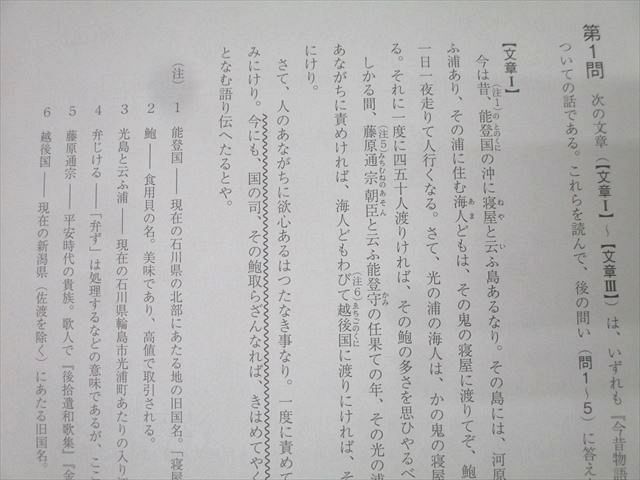 第1問 次の文章(【文章Ⅰ】~【文章Ⅲ】)は、いずれも『今昔物語
ついての話である。これらを読んで、後の問い(問1~5)に答え
【文章Ⅰ】
今は昔、(注1)能登国の沖に寝屋と云ふ島あるなり。その島には、河原
ふ浦あり、その浦に住む海人どもは、その鬼の寝屋に渡りてぞ、鮑
一日一夜走りて人行くなる。さて、光の浦の海人は、かの鬼の寝屋
る。それに一度に四五十人渡りければ、その鮑の多さを思ひやるべ
しかる間、(注5)藤原通宗朝臣と云ふ能登守の任果ての年、その光の浦
あながちに責めければ、海人どもわびて(注6)越後国に渡りにければ、そ
にけり。
さて、人のあながちに欲心あるはつたなき事なり。一度に責めて
みにけり。今にも、国の司、その鮑取らざんなれば、きはめてやく
となむ語り伝へたるとや。
(注) 1 能登国――現在の石川県の北部にあたる地の旧国名。「寝屋
2 鮑――食用貝の名。美味であり、高値で取引される。
3 光島と云ふ浦――現在の石川県輪島市光浦町あたりの入り
4 弁じける――「弁ず」は処理するなどの意味であるが、ここ
5 藤原通宗――平安時代の貴族。歌人で『後拾遺和歌集』『金
6 越後国――現在の新潟県(佐渡を除く)にあたる旧国名。